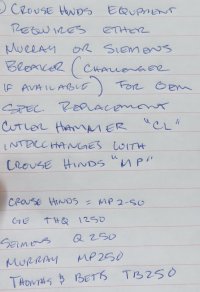 Crouse Hinds Equipment
Requires either
Murray or Siemens
Breaker (Challenger
if available) for OEM
Spec. Replacement
Cutler Hammer "CL"
interchanges with
Crouse Hinds "MP"
Crouse Hinds = MP2-50
GE THQ 1250
Seimens Q250
Murray MP250
Thomas & Betts TB250